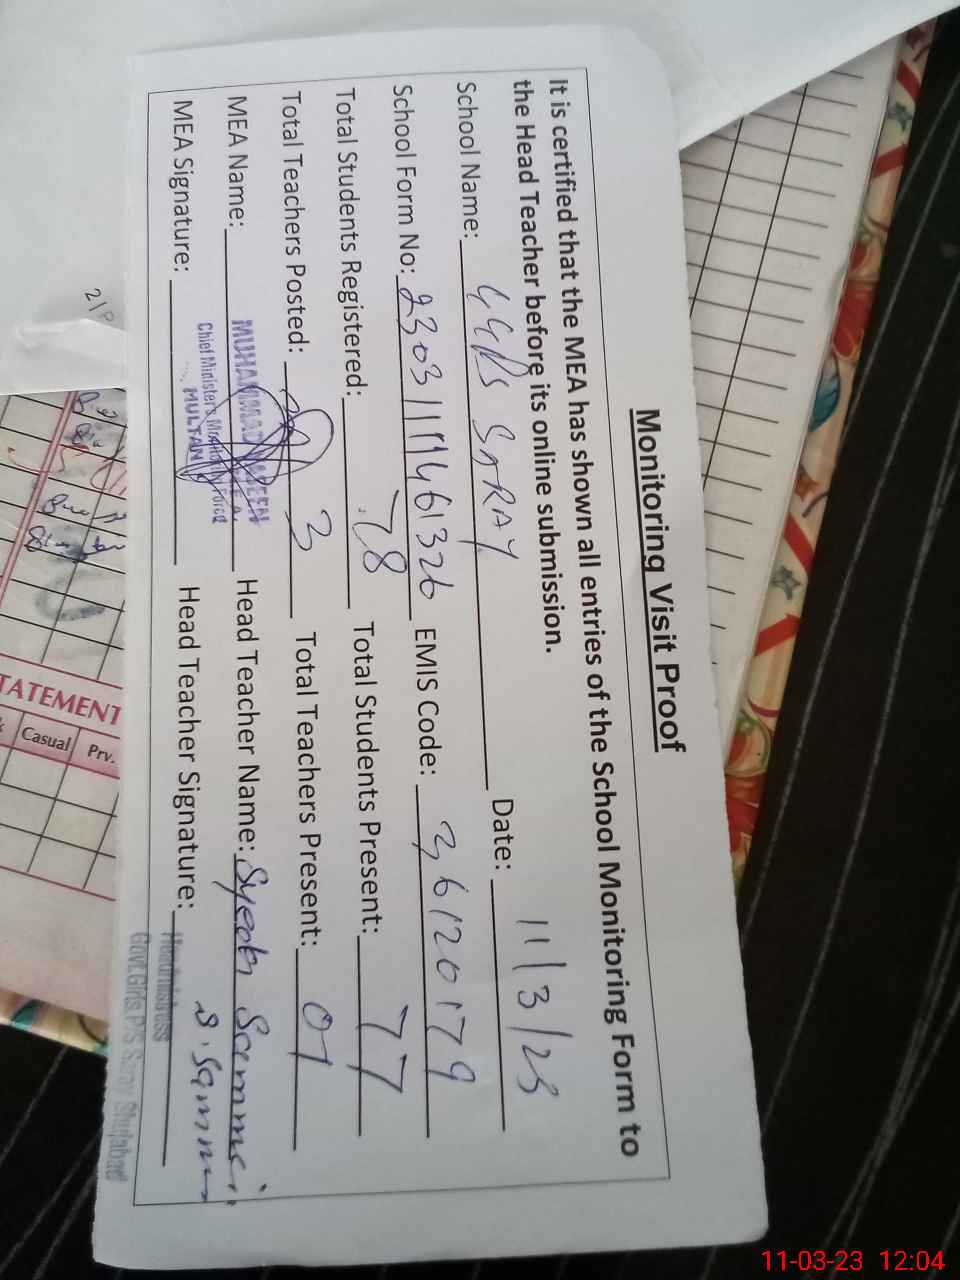 Monitoring Visit Proof
It is certified that the MEA has shown all entries of the School Monitoring Form to
the Head Teacher before its online submission.
School Name: GGPS SARAY Date: 11/3/23
School Form No: EMIS Code: 36120179
Total Students Registered: 78 Total Students Present: 77
Total Teachers Posted: 3 Total Teachers Present: 01
MEA Name: MUHAMMAD Head Teacher Name: Syeda
MEA Signature: Head Teacher Signature:
Chief Minister's Monitoring Force
MULTAN
Headmistress
Govt.Girls P/S Saray Shujabad
TATEMENT
Casual Prv.
11-03-23 12:04